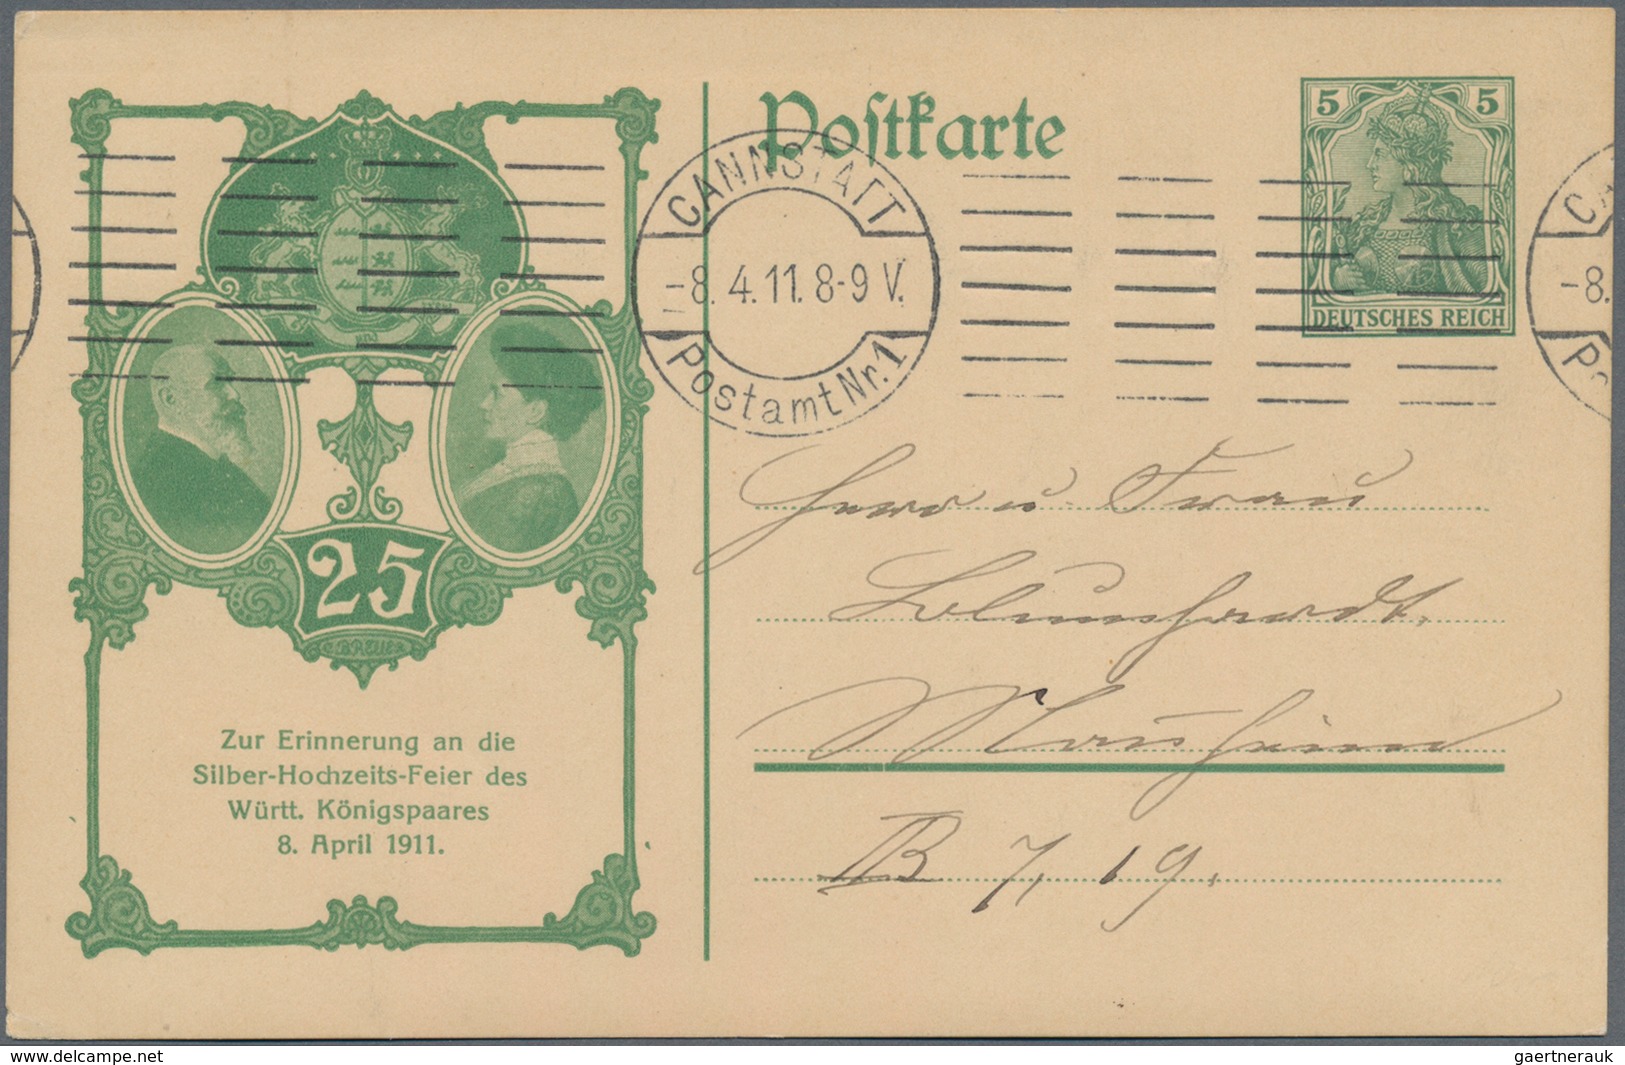 Postkarte
5 5
DEUTSCHES REICH
CANNSTATT
-8.4.11.8-9 V.
Postamt Nr. 1
CA
-8.
Po
25
C. BREUER
Zur Erinnerung an die
Silber-Hochzeits-Feier des
Württ. Königspaares
8. April 1911.
Herrn u. Frau
Mannheim
B 7, 19.
www.delcampe.net
gaertnerauk